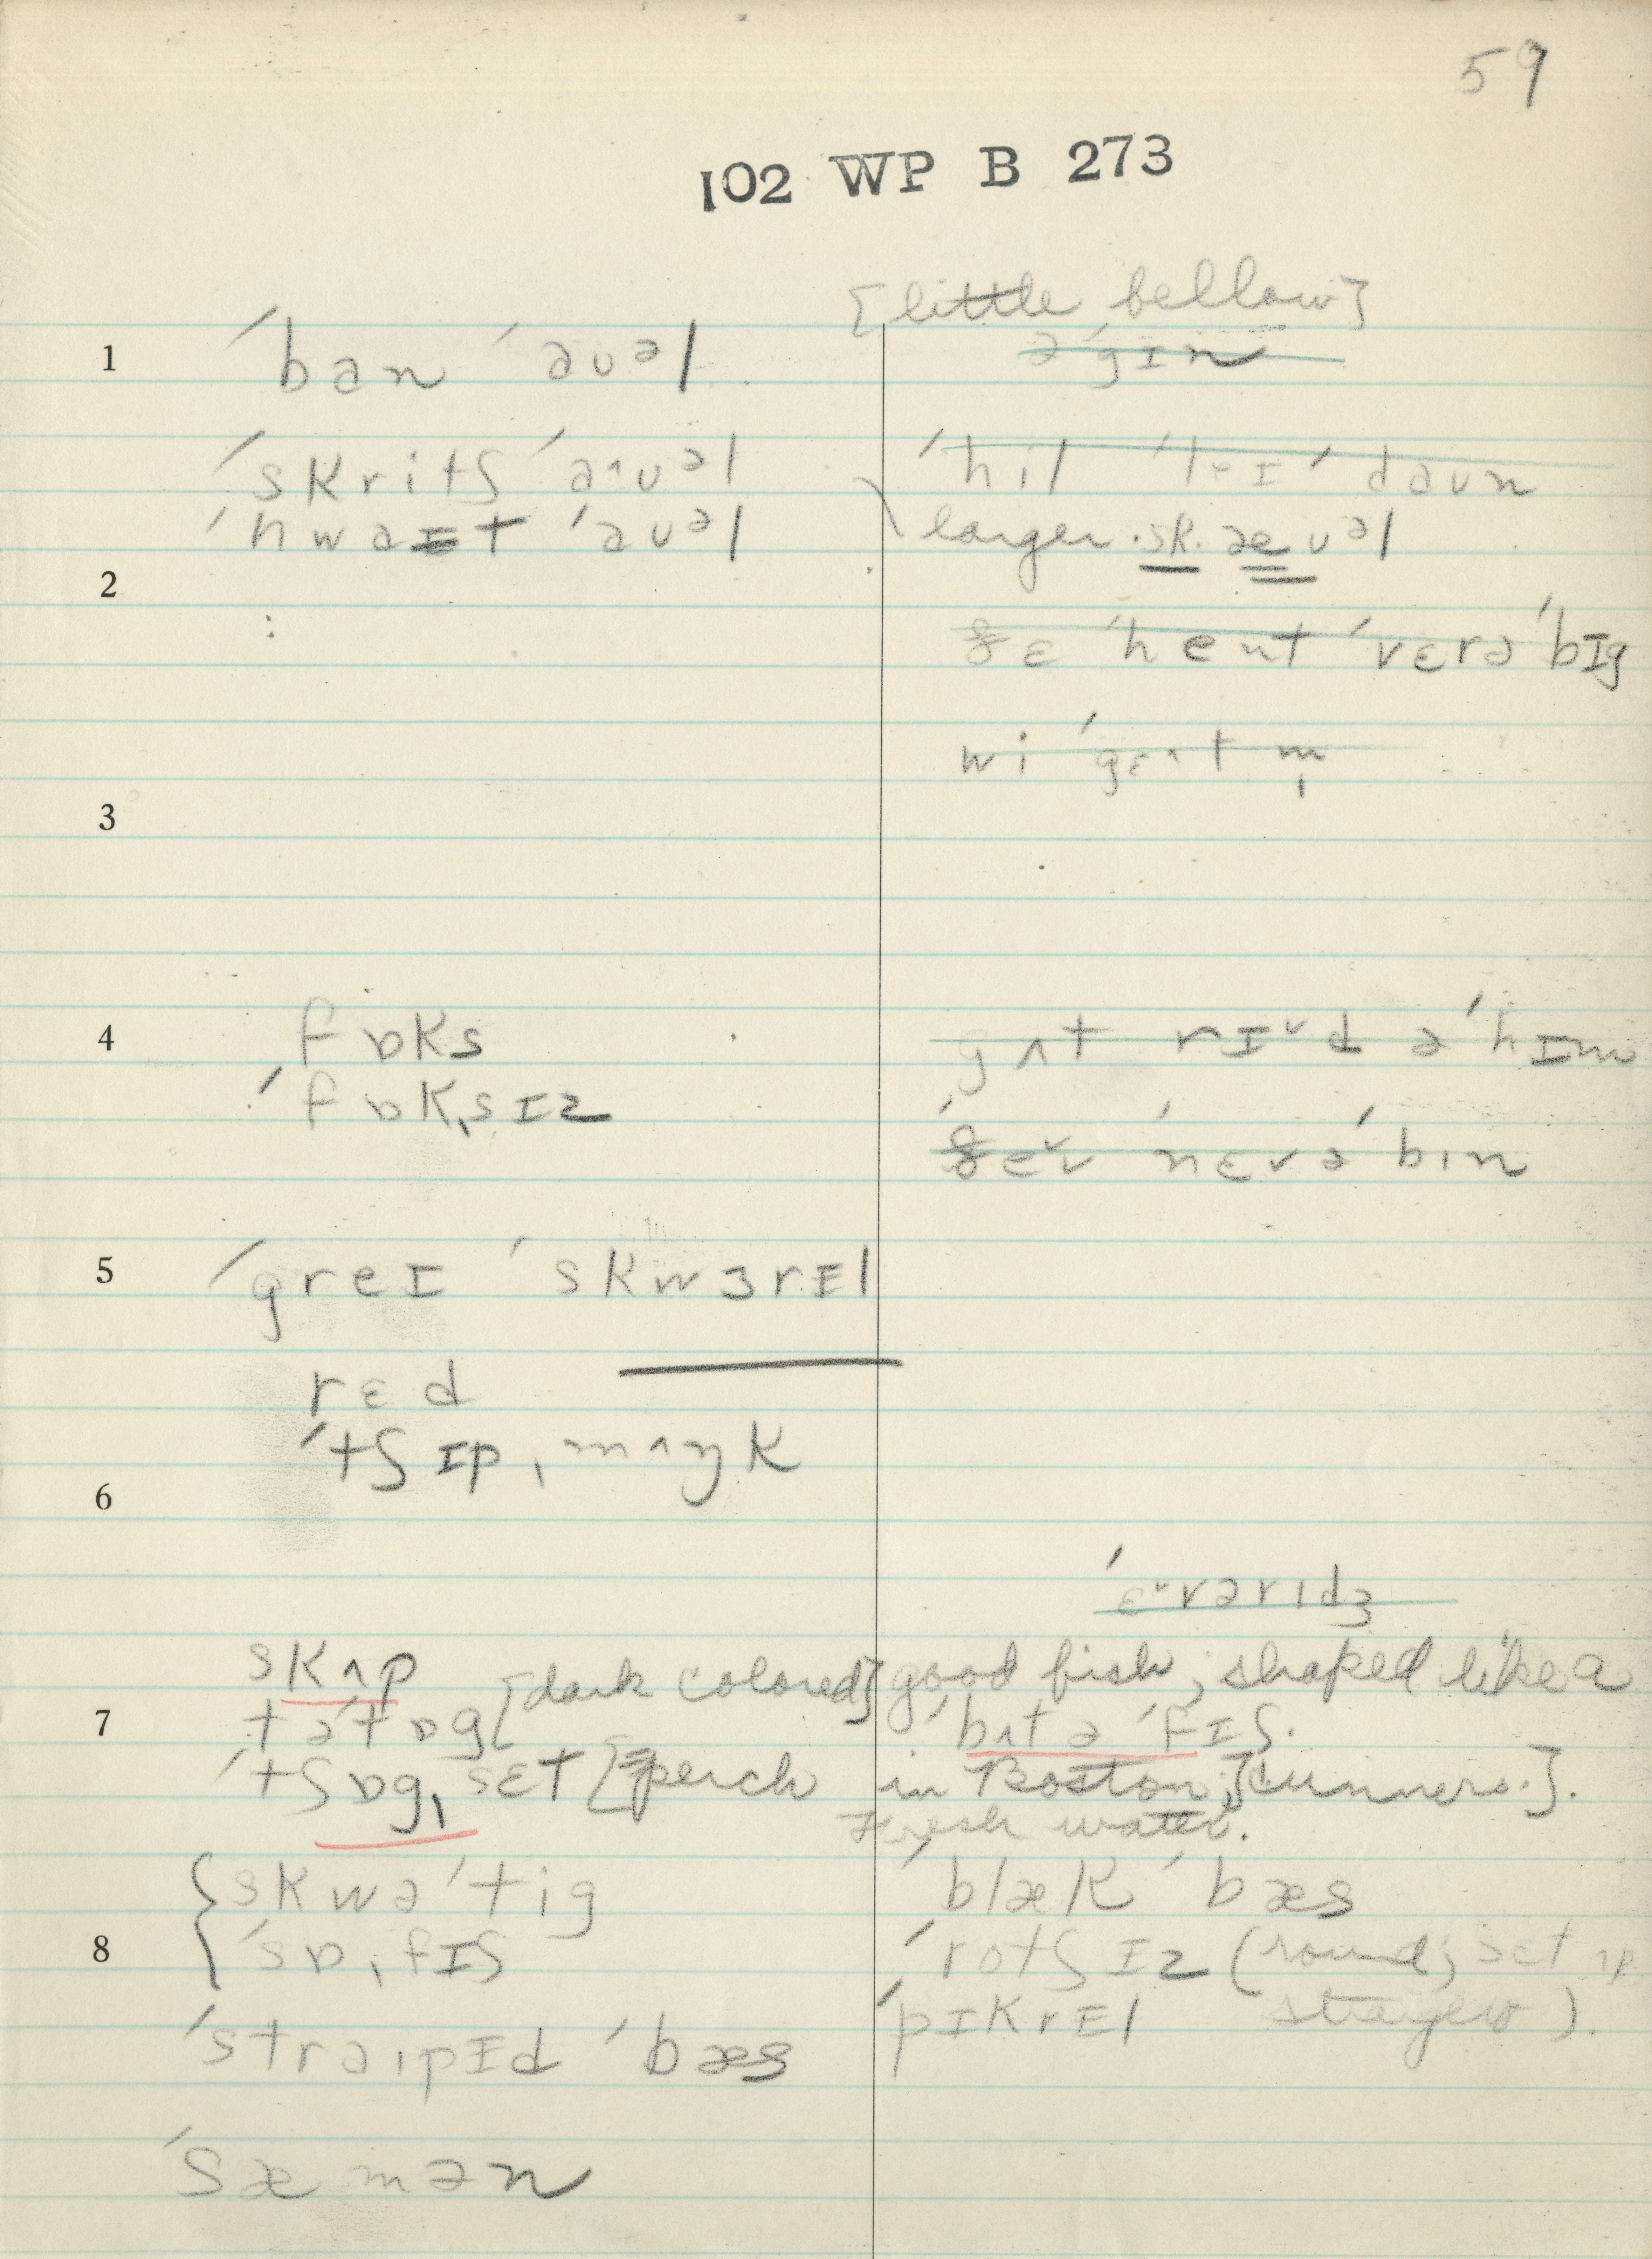 59
102 WP B 273
[little bellow]
1 ˈban ˈaʊəl
əˈgɪn
ˈskritʃ ˈaʌʊəl
ˈhil ˈleɪ ˈdaʊn
ˈhwaɪt ˈaʊəl
larger sk. æʊəl
2
ðɛ ˈhent ˈvɛrə ˈbɪg
wi ˈgɛʌt m̩
3
4 fɒks
gʌt rɪ˅d ə ˈhɪm
ˈfɒkˌsɪz
ˈðe˅r ˈnɛvə ˈbin
5 ˈgreɪ ˈskwɜrɪl
rɛd
ˈtʃɪpˌmʌŋk
6
ˈɛ˅vərɪdʒ
skʌp
good fish, shaped like a
7 təˈtɒg [dark colored]
ˈbʌtəˈfɪʃ.
ˈtʃɒgˌsɛt [perch in Boston; cunners.].
Fresh water.
8 skwəˈtig
ˈblæk ˈbæs
ˈsɒˌfɪʃ
ˈrotʃɪz (round; set up
ˈpɪkrɛl
).
ˈstraɪpɪd ˈbæs
ˈsæmən